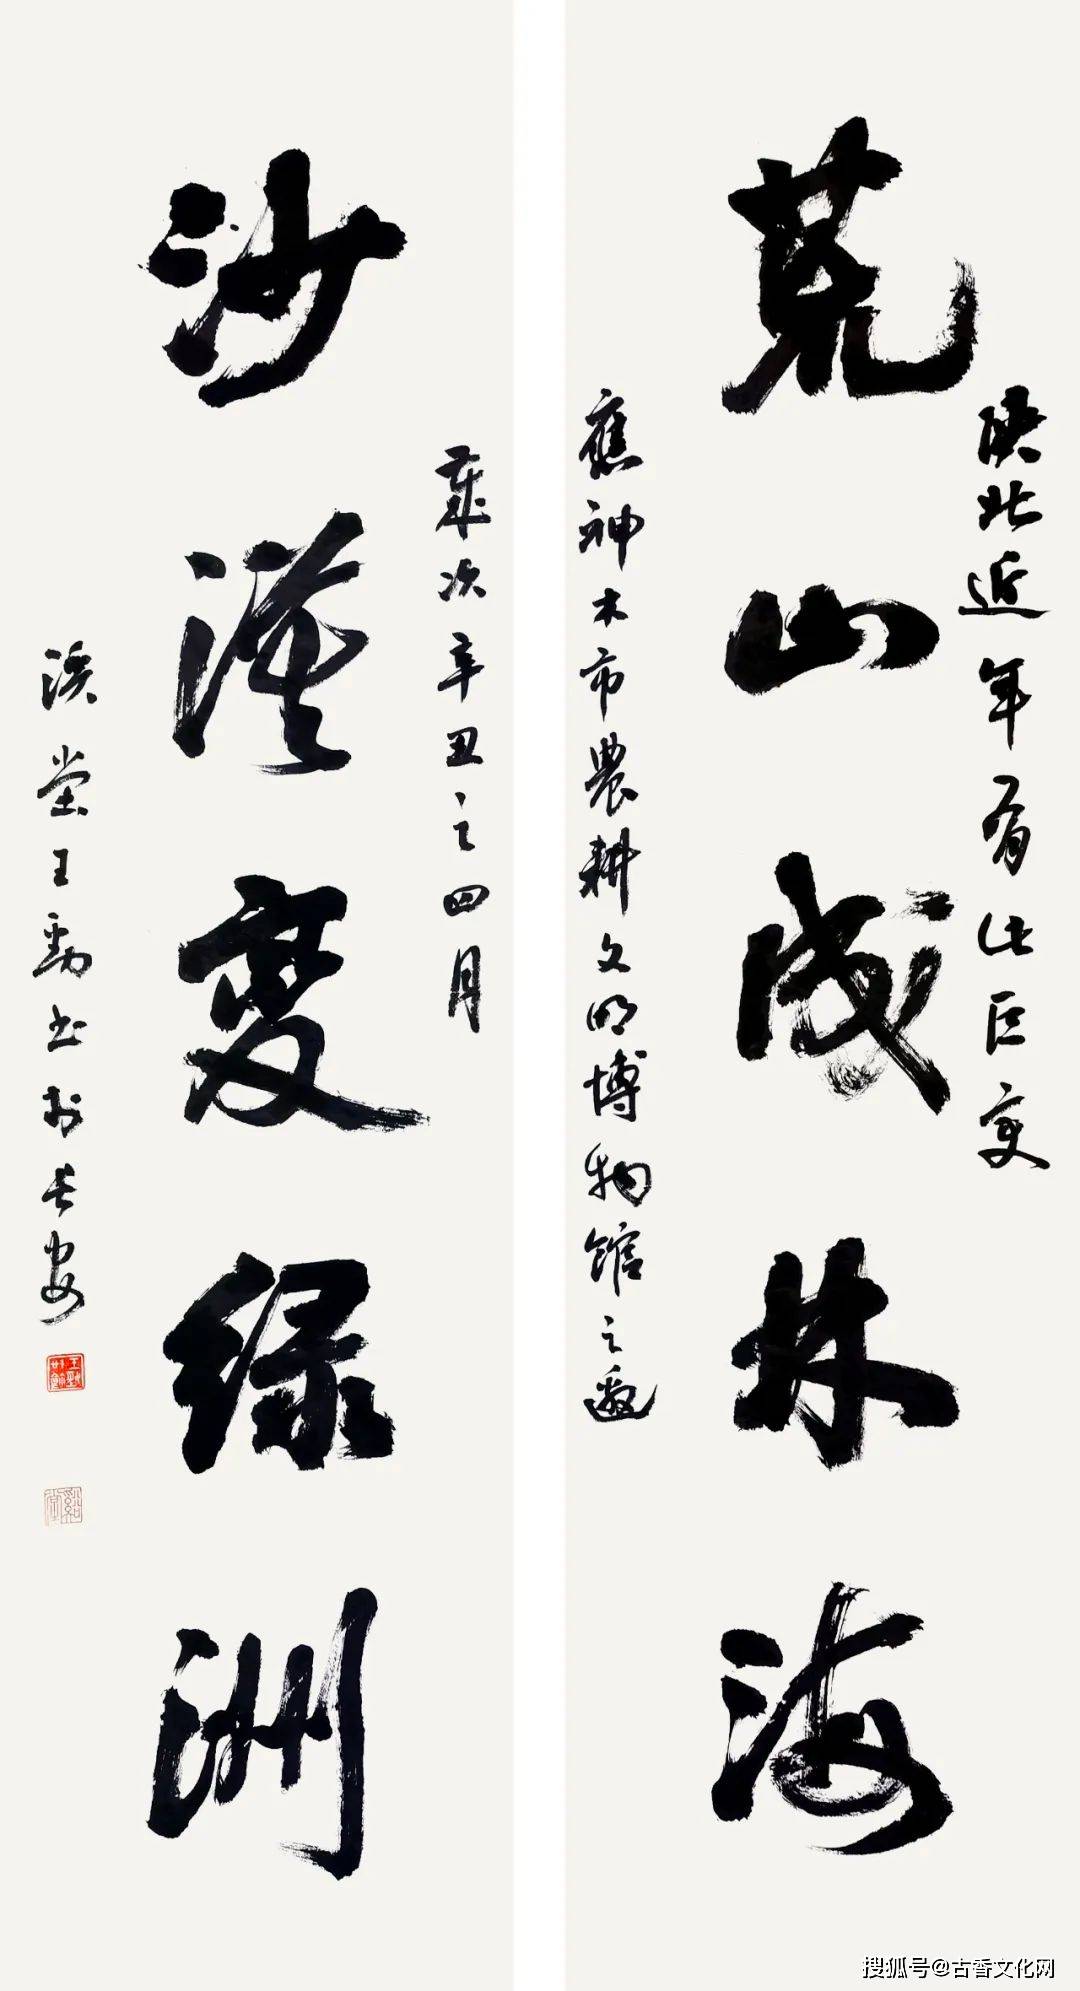 陕北近年有此巨变
荒山成林海
應神木市農耕文明博物馆之邀
歲次辛丑之四月
沙漠变绿洲
溪堂王勁书於长安
谿堂
搜狐号@古香文化网